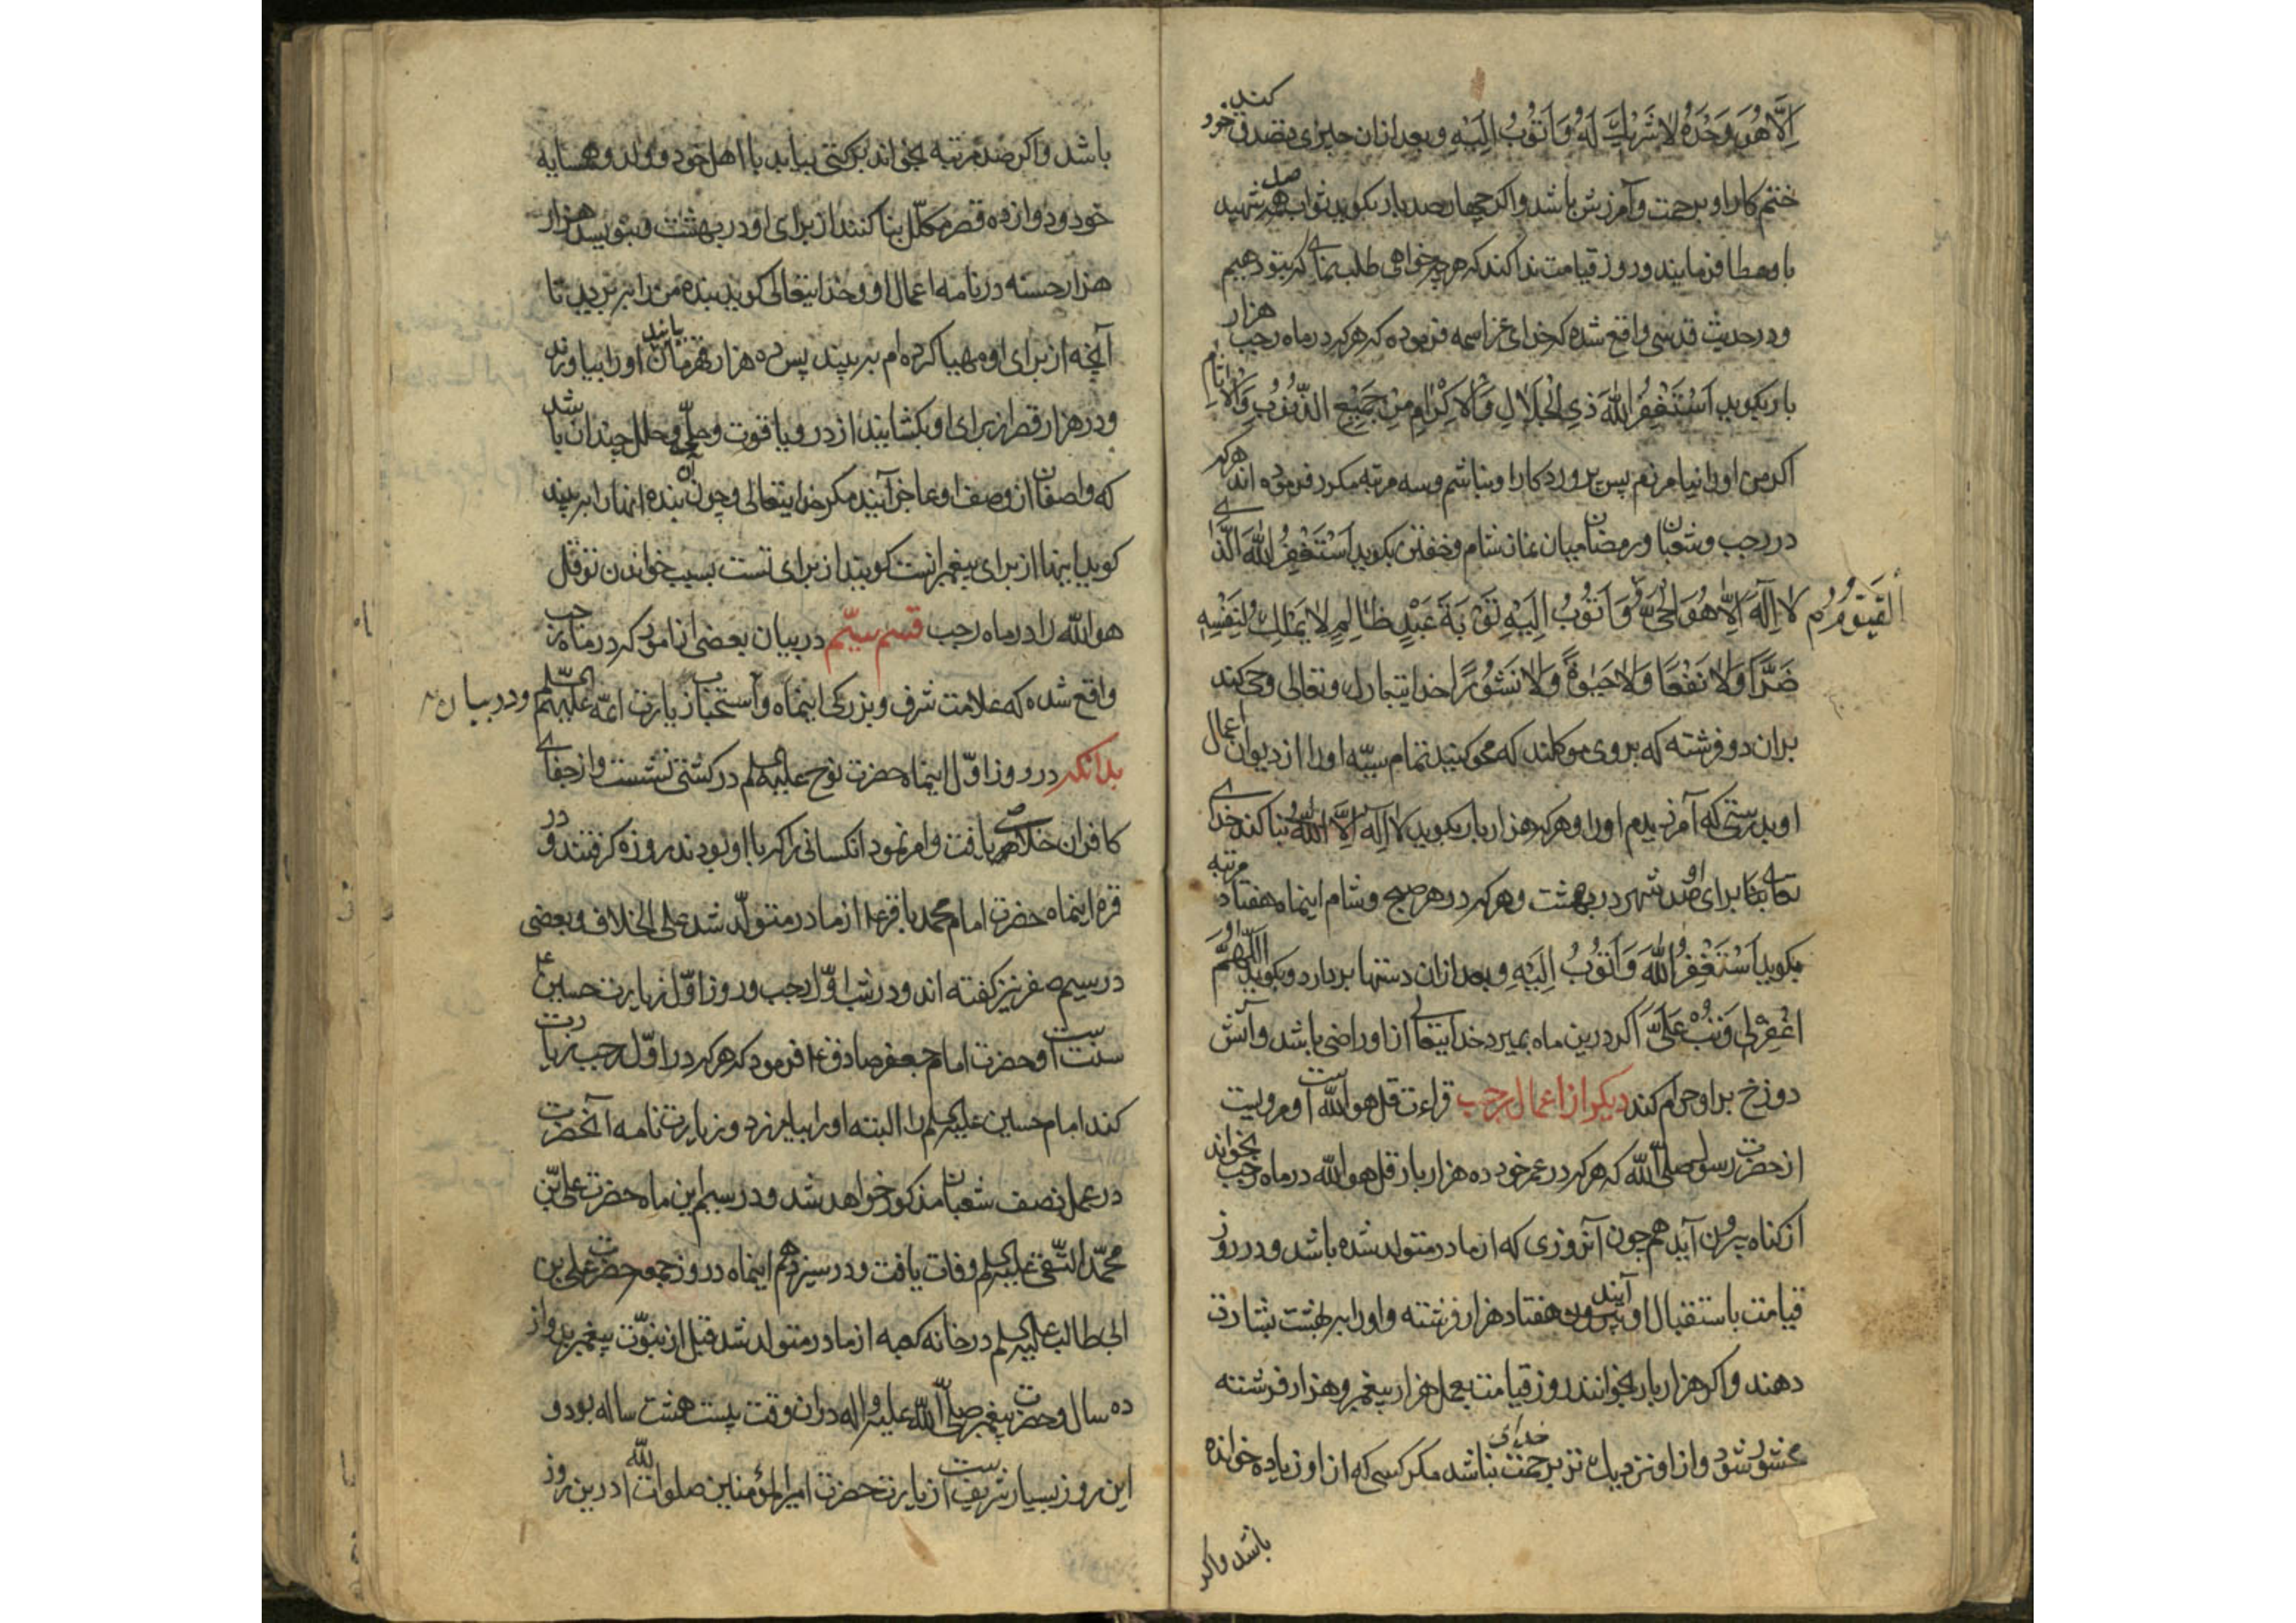 اِلَّا هُوَ وَحْدَهُ لَا شَرِيكَ لَهُ وَ اَتُوبُ اِلَيْهِ و بعد ازان چیزی تصدق کند خود
ختم کار او برحمت و آمرزش باشد و اکر چهار صد بار بکوید ثواب صد شهید
باو عطا فرمایند و روز قیامت ندا کند که هرچه خواهی طلب نمای که بتو دهیم
و در حدیث قدسی واقع شده که خدای عز اسمه فرموده که هرکه در ماه رجب هزار
بار بکوید اَسْتَغْفِرُ اللّٰهَ ذِی الْجَلَالِ وَالْاِكْرَامِ مِنْ جَمِيْعِ الذُّنُوْبِ وَالْاٰثَامِ
اکر من اورا نیامرزم پس پروردکار او نباشم و سه مرتبه مکرر فرموده اند هرکه
در رجب و شعبان و رمضان میان نماز شام و خفتن بکوید اَسْتَغْفِرُ اللّٰهَ الَّذِی
لَا اِلٰهَ اِلَّا هُوَ الْحَیُّ الْقَيُّوْمُ وَ اَتُوْبُ اِلَيْهِ تَوْبَةَ عَبْدٍ ظَالِمٍ لَا يَمْلِكُ لِنَفْسِهِ
ضَرًّا وَلَا نَفْعًا وَلَا حَيٰوةً وَلَا نَشُوْرًا خدای تبارک و تعالی وحی کند
بران دو فرشته که بر وی موکلند که محو کنید تمام سیّه اورا از دیوان اعمال
او بدرستی که آمرزیدم اورا و هرکه هزار بار بکوید لَا اِلٰهَ اِلَّا اللّٰهُ بنا کند خدای
تعالی برای او صد شهر در بهشت و هرکه در هر صبح و شام اینماه هفتاد مرتبه
بکوید اَسْتَغْفِرُ اللّٰهَ وَ اَتُوْبُ اِلَيْهِ و بعد ازان دستها بردارد و بکوید اَللّٰهُمَّ
اغْفِرْلِی وَ تُبْ عَلَیَّ اکر درین ماه بمیرد خدایتعالی ازو راضی باشد و آتش
دوزخ براو حرام کند دیکر از اعمال رجب قراءت قل هو الله است و مرویست
از حضرت رسول صلی الله که هرکه در عمر خود ده هزار بار قل هو الله در ماه رجب بخواند
از کناه بیرون آید همچون آنروزی که از مادر متولد شده باشد و در روز
قیامت باستقبال او بیرون آیند هفتاد هزار فرشته و اورا به بهشت بشارت
دهند و اکر هزار بار بخواند روز قیامت بعمل هزار پیغمبر و هزار فرشته
محشور شود و از او نزدیک تر برحمت خدای نباشد مکر کسی که از او زیاده خوانده
باشد واکر
باشد و اکر صد مرتبه بخواند برکتی بیابد با اهل خود و ولد و همسایه
خود و دوازده قصر مکلل بنا کنند از برای او در بهشت و بنویسد هزار
هزار حسنه در نامه اعمال او و خدایتعالی کوید بنده من را ببرید تا
آنچه از برای او مهیا کرده ام ببیند پس ده هزار قهرمان بیایند اورا بیاورند
و در هزار قصر از برای او بکشایند از در و یاقوت و حلی و حلل چندان باشد
که واصفان از وصف او عاجز آیند مکر خدایتعالی و چون آن بنده انها را ببیند
کوید اینها از برای پیغمبرانست کویند از برای تست بسبب خواندن تو قل
هو الله را در ماه رجب قسم سیّم در بیان بعضی از امور که در ماه رجب
واقع شده که علامت شرف و بزرکی اینماه و استحباب زیارت ائمّه علیهم السلم و در بیان
بدانکه در روز اوّل اینماه حضرت نوح علیه السلم در کشتی نشست و از جفای
کافران خلاصی یافت و امر نمود انکسانی را که با او بودند روزه کرفتند و در
غره اینماه حضرت امام محمد باقر ع از مادر متولّد شد علی الخلاف و بعضی
در سیم صفر نیز کفته اند و در شب اوّل رجب و روز اوّل زیارت حسین ع
سنت است و حضرت امام جعفر صادق ع فرمود که هرکه در اوّل رجب زیارت
کند امام حسین علیه السلم را البته اورا بیامرزد و زیارت نامه آنحضرت
در عمل نصف شعبان مذکور خواهد شد و در سیم این ماه حضرت علی بن
محمّد النّقی علیه السلم وفات یافت و در سیزدهم اینماه در روز جمعه حضرت علی بن
ابی طالب علیه السلم در خانه کعبه از مادر متولد شد قبل از نبوّت پیغمبر بدوازده
ده سال و حضرت پیغمبر صلی الله علیه و اله دران وقت بیست هشت ساله بود و
این روز بسیار شریفست زیارت حضرت امیر المؤمنین صلوات الله درین روز